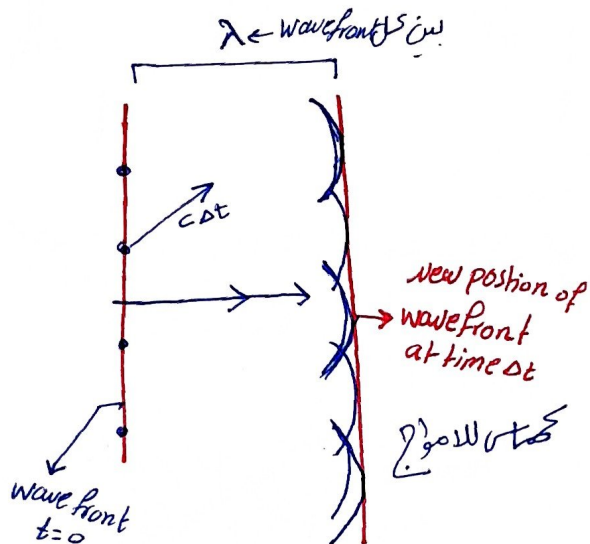 λ ← wavefront بين كل
cΔt
New postion of
wavefront
at time Δt
كمماس للامواج
wavefront
t=0